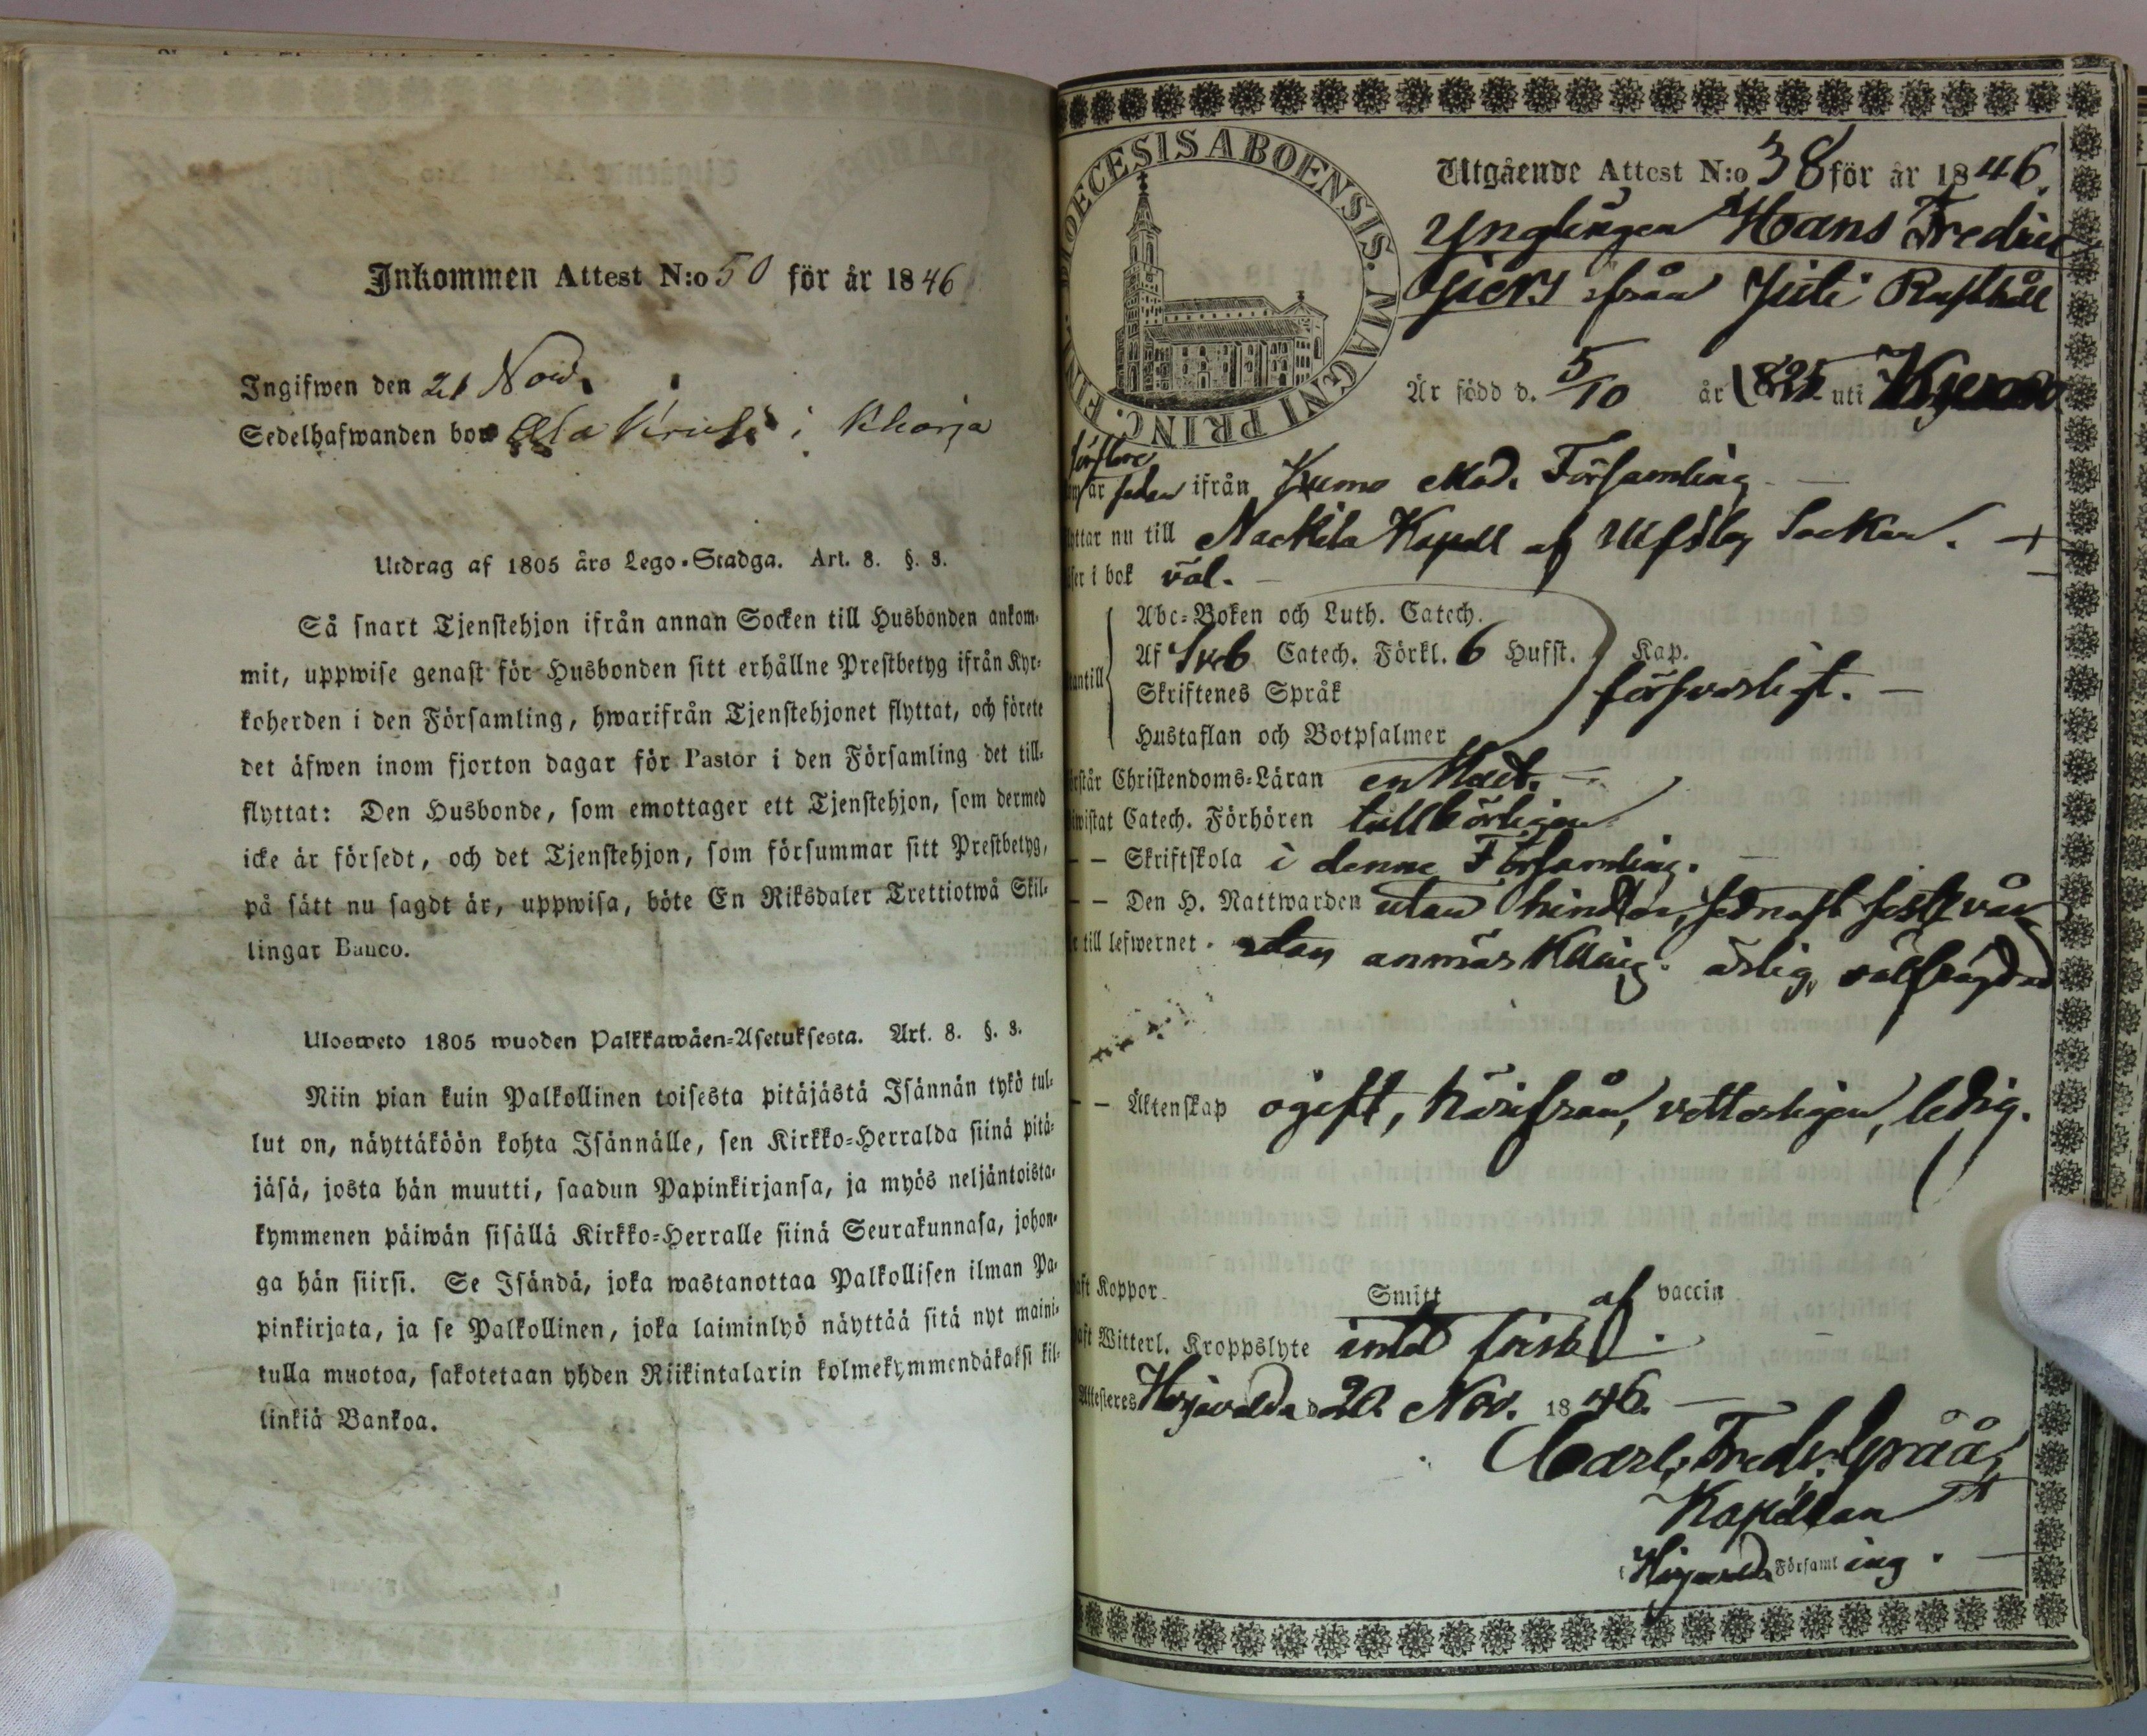 Inkommen Attest N:o 50 för år 1846
Ingifwen den 21 Nov.
Sedelhafwanden bor i Kharja
Utdrag af 1805 års Lego-Stadga. Art. 8. §. 3.
Så snart Tjenstehjon ifrån annan Socken till Husbonden ankom-
mit, uppwise genast för Husbonden sitt erhållne Prestbetyg ifrån Kyr-
koherden i den Församling, hwarifrån Tjenstehjonet flyttat, och förete
det äfwen inom fjorton dagar för Pastor i den Församling det till-
flyttat: Den Husbonde, som emottager ett Tjenstehjon, som dermed
icke är försedt, och det Tjenstehjon, som försummar sitt Prestbetyg,
på sätt nu sagdt är, uppwisa, böte En Riksdaler Trettiotwå Skil-
lingar Banco.
Ulosweto 1805 wuoden Palkkawäen-Asetuksesta. Art. 8. §. 3.
Niin pian kuin Palkollinen toisesta pitäjästä Isännän tykö tul-
lut on, näyttäköön kohta Isännälle, sen Kirkko-Herralda siinä pitä-
jäsä, josta hän muutti, saadun Papinkirjansa, ja myös neljäntoista-
kymmenen päiwän sisällä Kirkko-Herralle siinä Seurakunnasa, johon-
ga hän siirsi. Se Isändä, joka wastanottaa Palkollisen ilman Pa-
pinkirjata, ja se Palkollinen, joka laiminlyö näyttää sitä nyt maini-
tulla muotoa, sakotetaan yhden Riikintalarin kolmekymmendäkaksi kil-
linkiä Bankoa.
DIOECESIS ABOENSIS. MAGNI PRINC. FINL.
Utgående Attest N:o 38 för år 1846.
Ynglingen Hans Fredric
från Rusthåll
Är född d. 5/10 år 1825 uti
är sedan ifrån Kumo Mod. Församling
yttar nu till Nackila Kapell af Ulfsby Socken.
ser i bok väl.
Abc-Boken och Luth. Catech.
Af Sveb Catech. Förkl. 6 Hufst. Kap.
antill
Skriftenes Språk försvarligt.
Hustaflan och Botpsalmer
rstår Christendoms-Läran enkladt.
iwistat Catech. Förhören tillbörligen
– – Skriftskola i denne Församling.
– – Den H. Nattwarden utan hinder, sednast sistl. vår
till lefwernet utan anmärkning ärlig, välfrägdad
– – Äktenskap ogift, härifrån, vetterligen, ledig.
aft Koppor. Smitt af vaccin
aft Witterl. Kroppslyte intet
Attesteres Harjavalda d. 20. Nov. 1846.
Carl Fredr. Gråå,
Kapellan
i Harjavalda Församling.